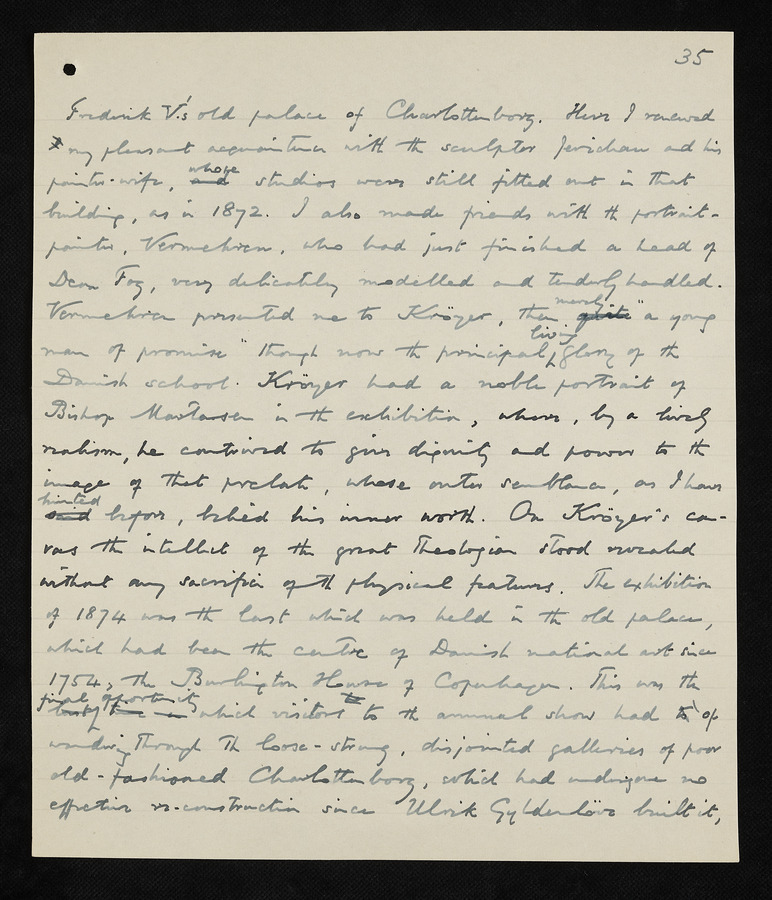 35
Frederik V.'s old palace of Charlottenborg. Here I renewed
my pleasant acquaintance with the sculptor Jerichau and his
painter-wife, and whose studios were still fitted out in that
building, as in 1872. I also made friends with the portrait-
painter, Vermehren, who had just finished a head of
Dean Fog, very delicately modelled and tenderly handled.
Vermehren presented me to Kröyer, then quite merely "a young
man of promise" though now the principal living glory of the
Danish school. Kröyer had a noble portrait of
Bishop Martensen in the exhibition, where, by a lively
realism, he contrived to give dignity and power to the
image of that prelate, whose outer semblance, as I have
said hinted before, belied his inner worth. On Kröyer's can-
vas the intellect of the great Theologian stood revealed
without any sacrifice of the physical features. The exhibition
of 1874 was the last which was held in the old palace,
which had been the centre of Danish national art since
1754, the Burlington House of Copenhagen. This was the
final opportunity which visitors to the annual show had of
wandering through the loose-strung, disjointed galleries of poor
old-fashioned Charlottenborg, which had undergone no
effective re-construction since Ulrik Gyldenlöve built it,